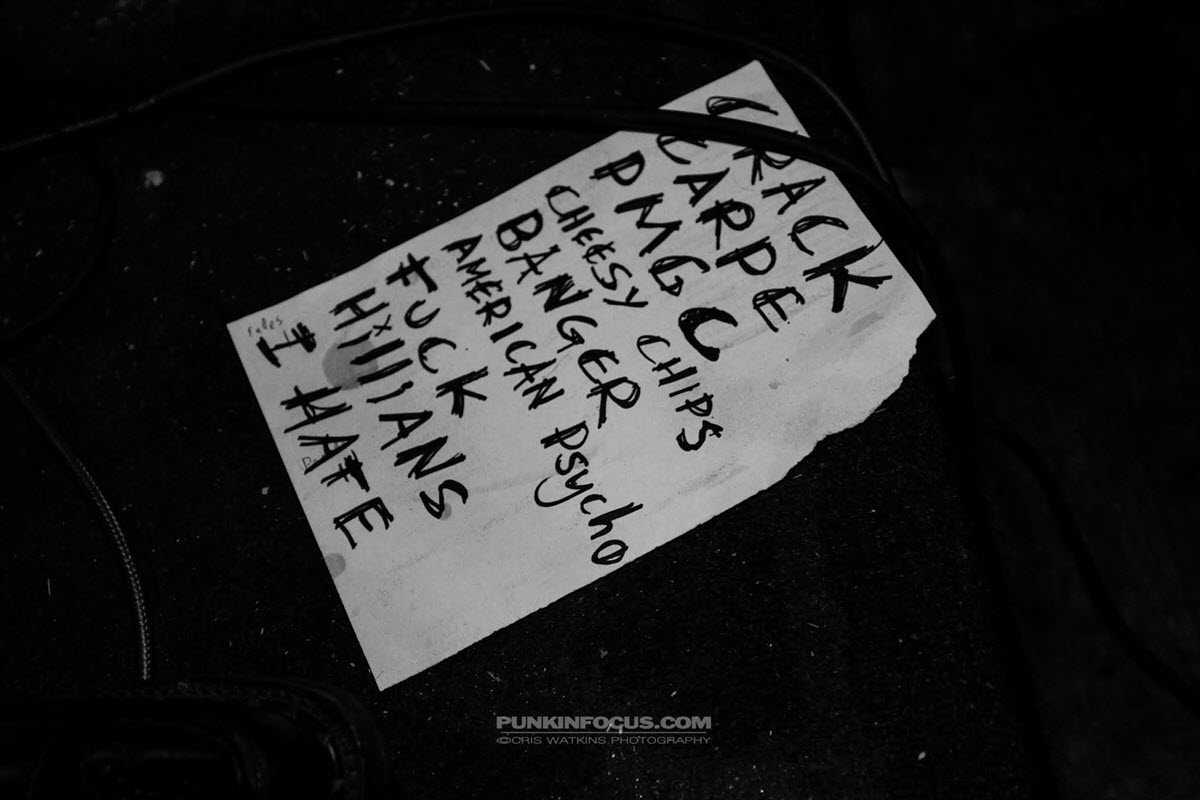 CRACK
CARPE
PMGC
CHEESY CHIPS
BANGER
AMERICAN PSYCHO
FUCK
HILLIANS
I HATE
PUNKINFOCUS.COM
©CRIS WATKINS PHOTOGRAPHY